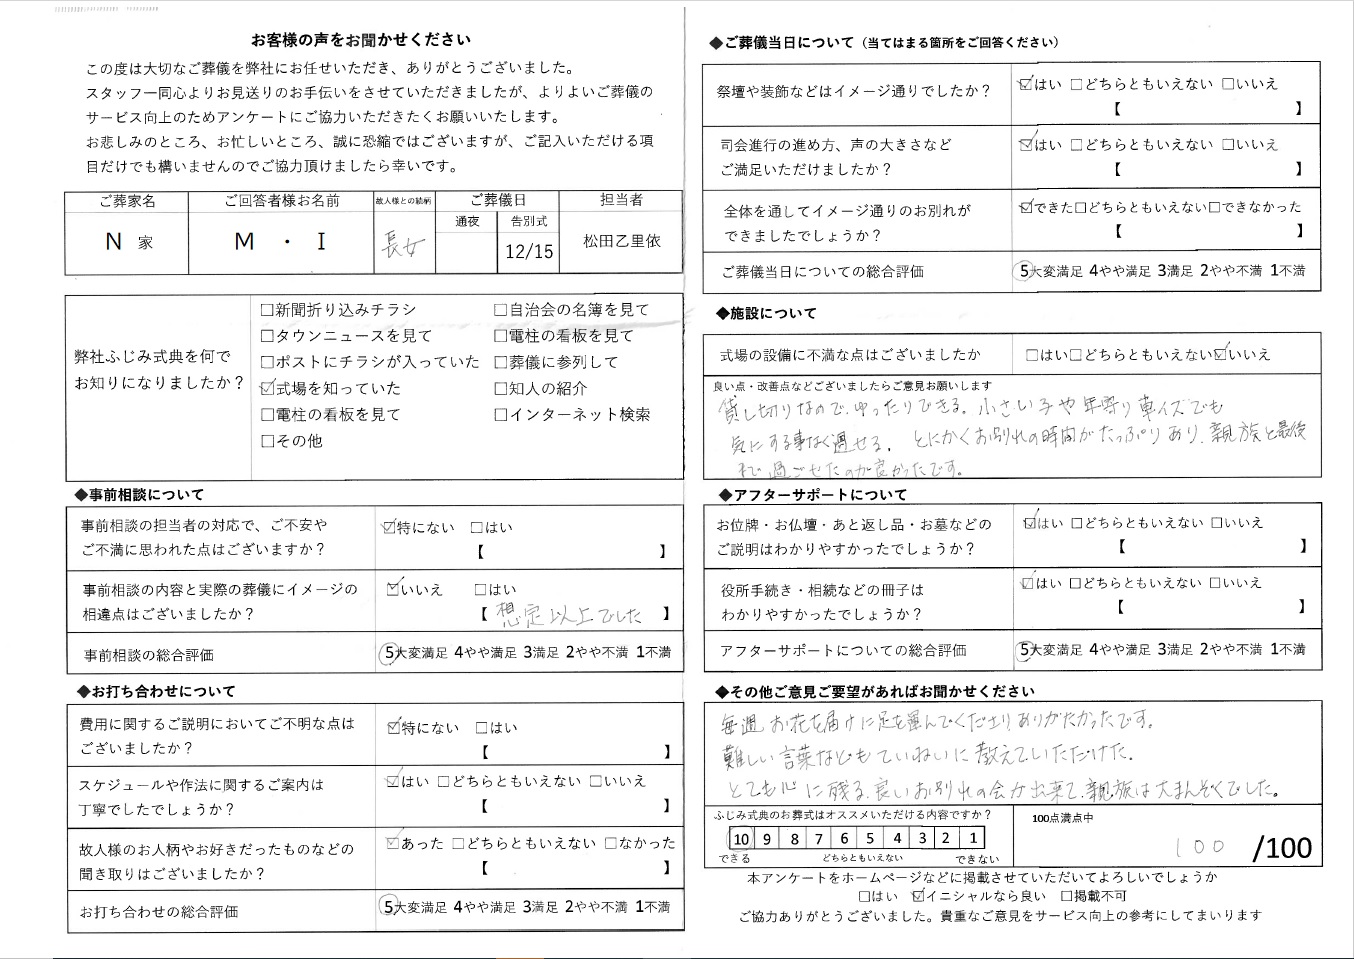 お客様の声をお聞かせください
この度は大切なご葬儀を弊社にお任せいただき、ありがとうございました。
スタッフ一同心よりお見送りのお手伝いをさせていただきましたが、よりよいご葬儀の
サービス向上のためアンケートにご協力いただきたくお願いいたします。
お悲しみのところ、お忙しいところ、誠に恐縮ではございますが、ご記入いただける項
目だけでも構いませんのでご協力頂けましたら幸いです。
ご葬家名 ご回答者様お名前 故人様との続柄 ご葬儀日 担当者
通夜 告別式
N 家 M ・ I 長女 12/15 松田乙里依
弊社ふじみ式典を何で
お知りになりましたか?
□新聞折り込みチラシ □自治会の名簿を見て
□タウンニュースを見て □電柱の看板を見て
□ポストにチラシが入っていた □葬儀に参列して
☑式場を知っていた □知人の紹介
□電柱の看板を見て □インターネット検索
□その他
◆事前相談について
事前相談の担当者の対応で、ご不安や
ご不満に思われた点はございますか?
☑特にない □はい
【 】
事前相談の内容と実際の葬儀にイメージの
相違点はございましたか?
☑いいえ □はい
【 想定以上でした 】
事前相談の総合評価 5大変満足 4やや満足 3満足 2やや不満 1不満
◆お打ち合わせについて
費用に関するご説明においてご不明な点は
ございましたか?
☑特にない □はい
【 】
スケジュールや作法に関するご案内は
丁寧でしたでしょうか?
☑はい □どちらともいえない □いいえ
【 】
故人様のお人柄やお好きだったものなどの
聞き取りはございましたか?
☑あった □どちらともいえない □なかった
【 】
お打ち合わせの総合評価 5大変満足 4やや満足 3満足 2やや不満 1不満
◆ご葬儀当日について（当てはまる箇所をご回答ください）
祭壇や装飾などはイメージ通りでしたか?
☑はい □どちらともいえない □いいえ
【 】
司会進行の進め方、声の大きさなど
ご満足いただけましたか?
☑はい □どちらともいえない □いいえ
【 】
全体を通してイメージ通りのお別れが
できましたでしょうか?
☑できた□どちらともいえない□できなかった
【 】
ご葬儀当日についての総合評価 5大変満足 4やや満足 3満足 2やや不満 1不満
◆施設について
式場の設備に不満な点はございましたか □はい□どちらともいえない☑いいえ
良い点・改善点などございましたらご意見お願いします
貸し切りなので、ゆったりできる。小さい子や年寄り車イスでも
気にする事なく過せる。とにかくお別れの時間がたっぷりあり、親族と最後
まで過ごせたのが良かったです。
◆アフターサポートについて
お位牌・お仏壇・あと返し品・お墓などの
ご説明はわかりやすかったでしょうか?
☑はい □どちらともいえない □いいえ
【 】
役所手続き・相続などの冊子は
わかりやすかったでしょうか?
☑はい □どちらともいえない □いいえ
【 】
アフターサポートについての総合評価 5大変満足 4やや満足 3満足 2やや不満 1不満
◆その他ご意見ご要望があればお聞かせください
毎週お花を届けに足を運んでくださりありがたかったです。
難しい言葉などもていねいに教えていただけた。
とても心に残る良いお別れの会が出来て、親族は大まんぞくでした。
ふじみ式典のお葬式はオススメいただける内容ですか?
10 9 8 7 6 5 4 3 2 1
できる どちらともいえない できない
100点満点中
100 /100
本アンケートをホームページなどに掲載させていただいてよろしいでしょうか
□はい ☑イニシャルなら良い □掲載不可
ご協力ありがとうございました。貴重なご意見をサービス向上の参考にしてまいります